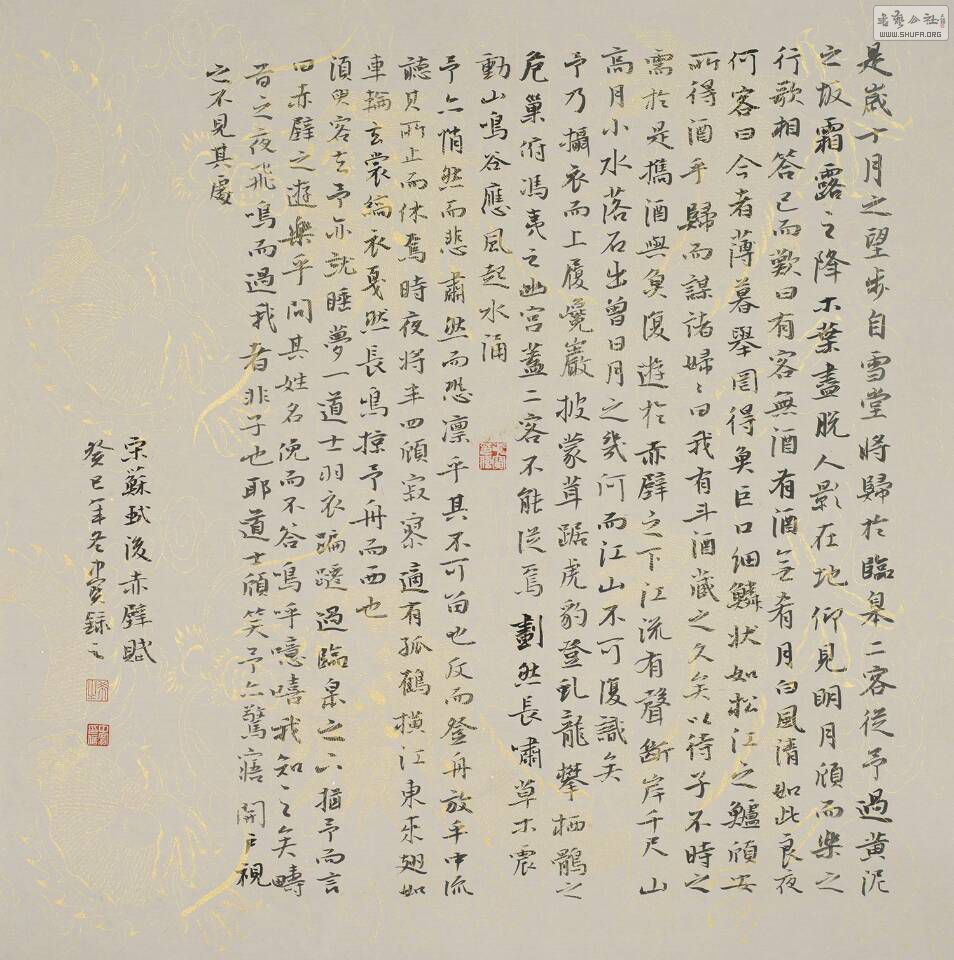 是歲十月之望步自雪堂將歸於臨皋二客從予過黃泥
之坂霜露之降木葉盡脫人影在地仰見明月顧而樂之
行歌相答已而歎曰有客無酒有酒無肴月白風清如此良夜
何客曰今者薄暮舉罔得魚巨口細鱗狀如松江之鱸顧安
所得酒乎歸而謀諸婦〻曰我有斗酒藏之久矣以待子不時之
需於是攜酒與魚復遊於赤壁之下江流有聲斷岸千尺山
高月小水落石出曾日月之幾何而江山不可復識矣
予乃攝衣而上履巉巖披蒙茸踞虎豹登虬龍攀栖鶻之
危巢俯馮夷之幽宮蓋二客不能從焉劃然長嘯草木震
動山鳴谷應風起水涌
予亦悄然而悲肅然而恐凜乎其不可留也反而登舟放乎中流
聽其所止而休焉時夜將半四顧寂寥適有孤鶴橫江東來翅如
車輪玄裳縞衣戛然長鳴掠予舟而西也
須臾客去予亦就睡夢一道士羽衣蹁躚過臨皋之下揖予而言
曰赤壁之遊樂乎問其姓名俛而不答嗚呼噫嘻我知之矣疇
昔之夜飛鳴而過我者非子也耶道士顧笑予亦驚寤開戶視
之不見其處
宋蘇軾後赤壁賦
癸巳年冬中實錄之
書藝公社
WWW.SHUFA.ORG